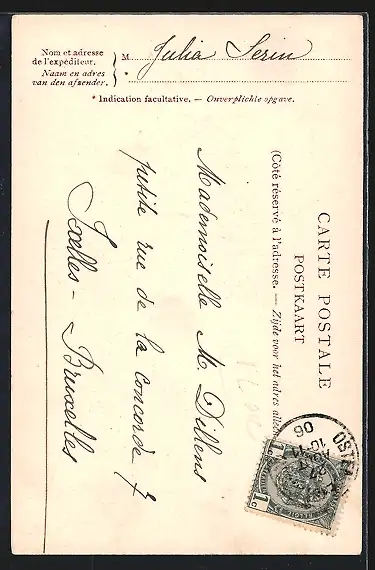 Nom et adresse
de l'expéditeur.
Naam en adres
van den afzender.
M Julia Serin
*
* Indication facultative. — Onverplichte opgave.
CARTE POSTALE
POSTKAART
(Côté réservé à l'adresse. — Zijde voor het adres alleen
Mademoiselle M. Dillens
petite rue de la Concorde 7
Ixelles - Bruxelles
1c 1c
06